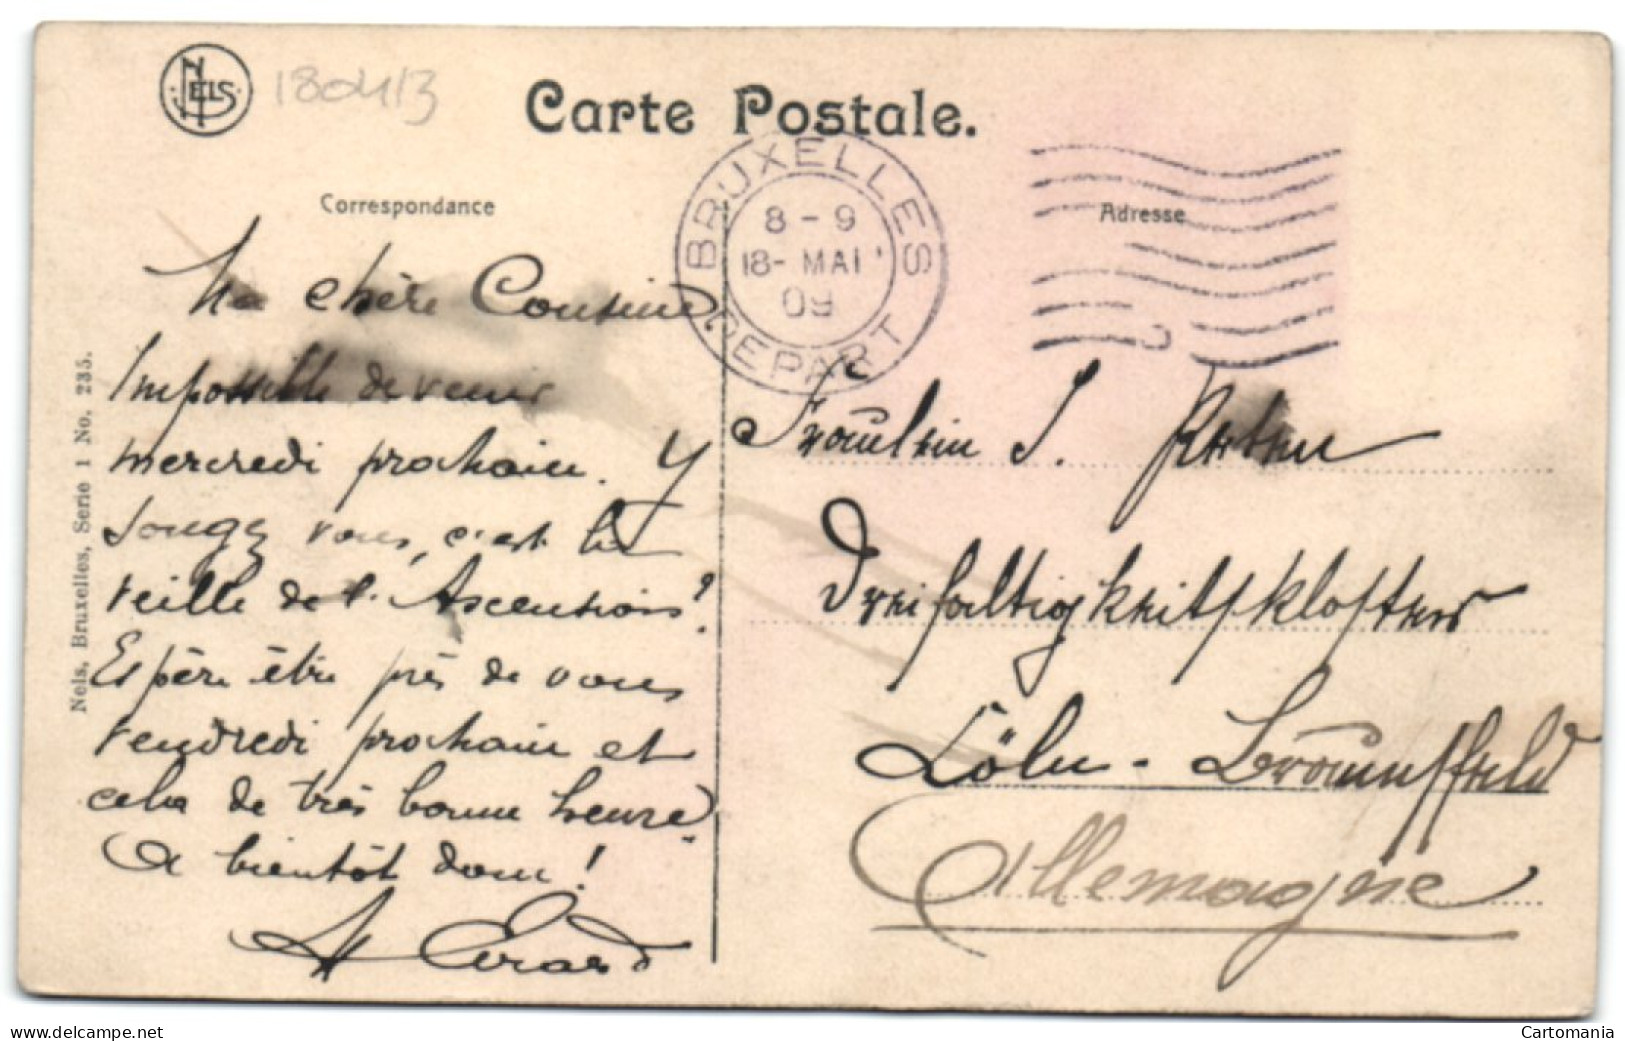 NELS
180413
Carte Postale.
Correspondance
Adresse
BRUXELLES
8 - 9
18 - MAI
09
DEPART
Ma chère Cousine
Impossible de venir
mercredi prochain. Y
songez vous, c'est la
veille de l'Ascension?
Espère être près de vous
vendredi prochain et
cela de très bonne heure.
A bientôt donc!
Nels, Bruxelles, Serie 1 No. 235.
Fräulein J.
Dreifaltigkeitsklofter
Cöln - Braunsfeld
Allemagne
www.delcampe.net
Cartomania